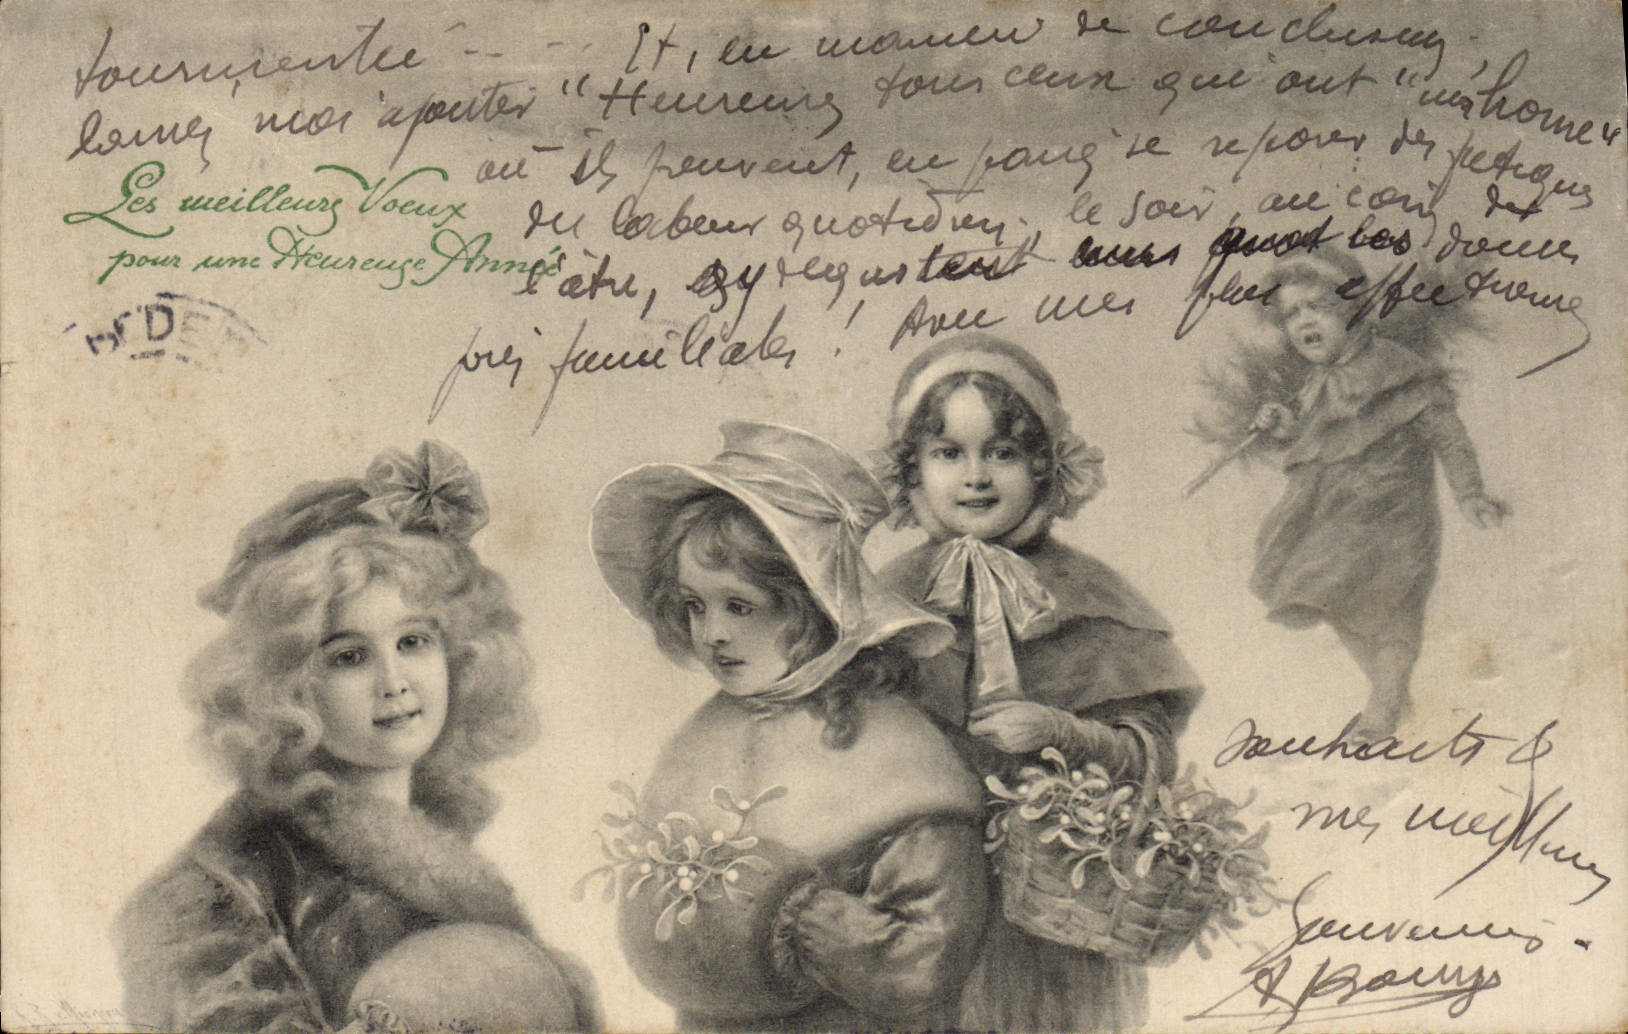 tourmentée - - - - - Et, en manière de conclusion,
laissez moi ajouter "Heureux tous ceux qui ont "un home"
où ils peuvent, en paix se reposer des fatigues
du labeur quotidien, le soir, au coin de
l'âtre, en y dégustant leurs donnes
joies familiales ! Avec mes plus affectueux
Les meilleurs Voeux
pour une Heureuse Année
souhaits &
mes meilleurs
Souvenirs -